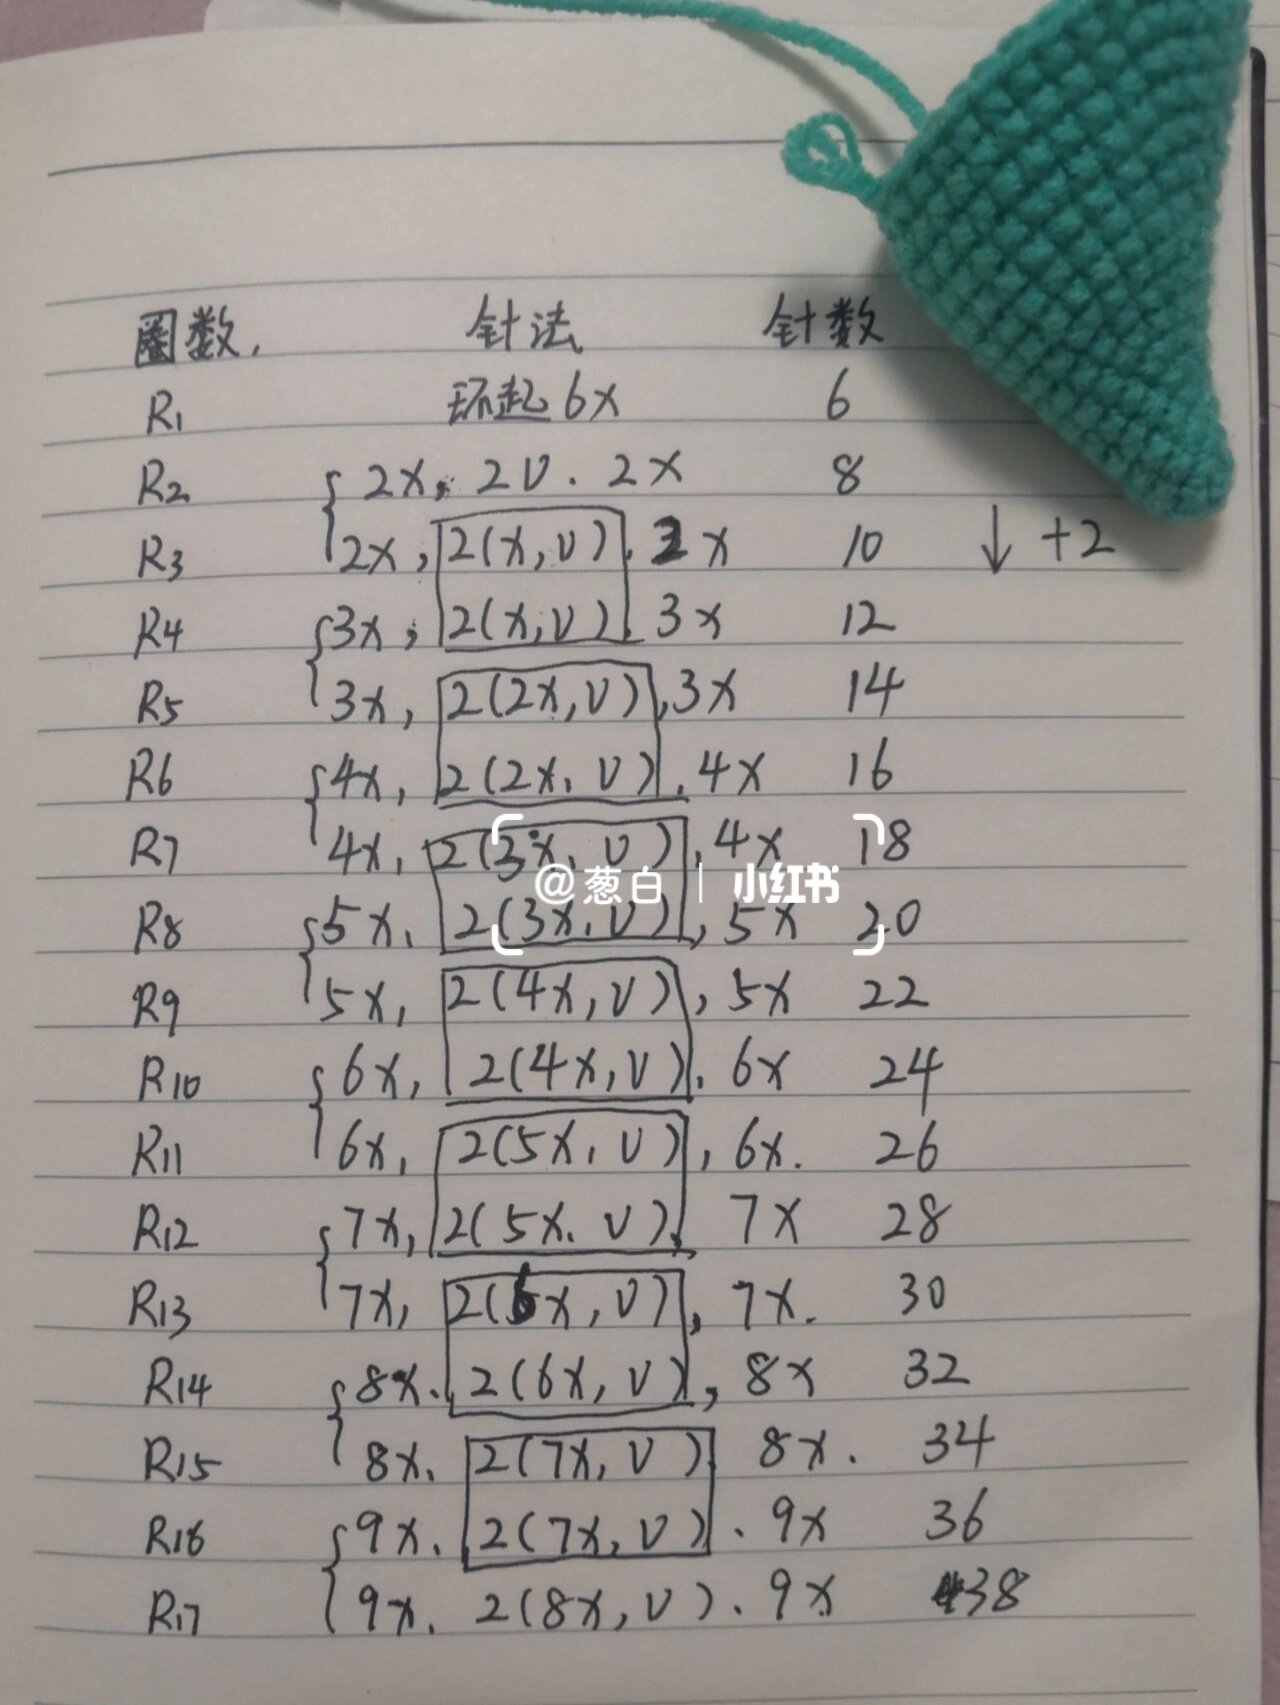 圈数. 针法 针数
R1 环起6x 6
R2 2x, 2v. 2x 8
R3 2x, 2(x,v). 2x 10 ↓ +2
R4 3x, 2(x,v). 3x 12
R5 3x, 2(2x,v), 3x 14
R6 4x, 2(2x, v). 4x 16
R7 4x, 2(3x, v), 4x 18
@葱白 | 小红书
R8 5x, 2(3x,v), 5x 20
R9 5x, 2(4x,v), 5x 22
R10 6x, 2(4x,v). 6x 24
R11 6x, 2(5x, v), 6x. 26
R12 7x, 2(5x. v), 7x 28
R13 7x, 2(6x,v), 7x. 30
R14 8x. 2(6x,v), 8x 32
R15 8x. 2(7x,v) 8x. 34
R16 9x. 2(7x,v). 9x 36
R17 9x. 2(8x,v). 9x 38